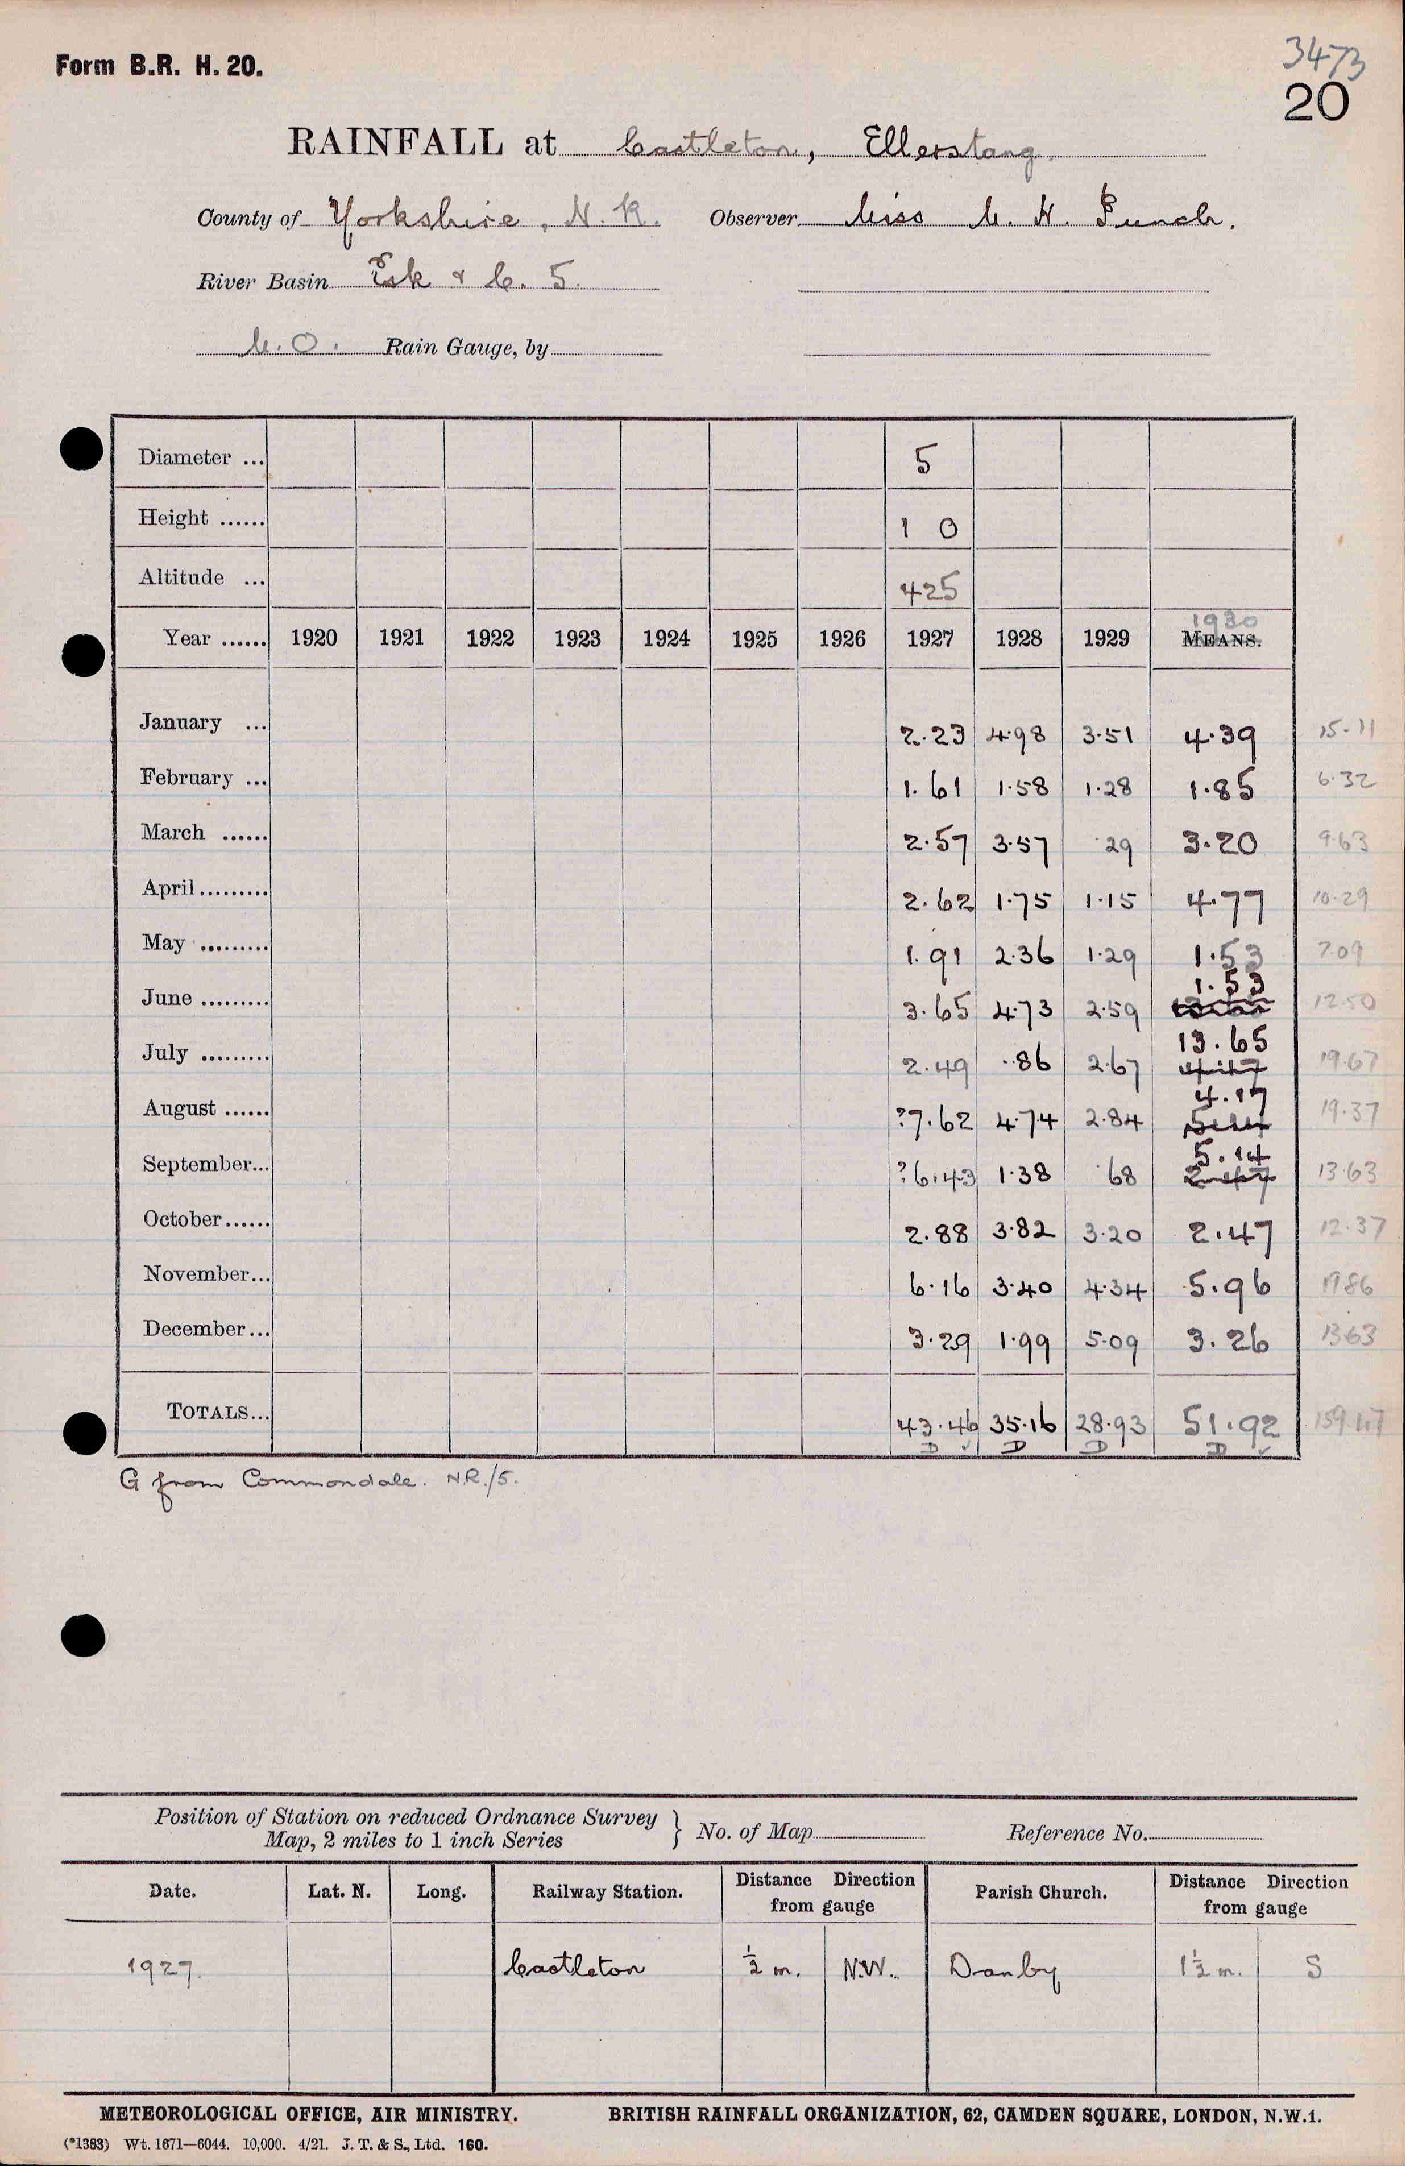 Form B.R. H. 20.
3473
20
RAINFALL at Castleton, Ellerstang.
County of Yorkshire, N.R. Observer Miss C. H. Punch.
River Basin Esk & C. 5.
M.O. Rain Gauge, by
Diameter ... 5
Height ...... 1 0
Altitude ... 425
1930
Year ...... 1920 1921 1922 1923 1924 1925 1926 1927 1928 1929 MEANS.
January ... 2.23 4.98 3.51 4.39 15.11
February ... 1.61 1.58 1.28 1.85 6.32
March ...... 2.57 3.57 .29 3.20 9.63
April ......... 2.62 1.75 1.15 4.77 10.29
May ......... 1.91 2.36 1.29 1.53 7.09
June ......... 3.65 4.73 2.59 1.53 12.50
July ......... 2.49 .86 2.67 13.65 4.17 19.67
August ...... ?7.62 4.74 2.84 4.17 5.14 19.37
September... ?6.43 1.38 .68 5.14 2.47 13.63
October...... 2.88 3.82 3.20 2.47 12.37
November... 6.16 3.40 4.34 5.96 19.86
December... 3.29 1.99 5.09 3.26 13.63
TOTALS... 43.46 35.16 28.93 51.92 159.47
D ✓ D D D ✓
G from Commondale. N.R./5.
Position of Station on reduced Ordnance Survey
Map, 2 miles to 1 inch Series } No. of Map Reference No.
Date. Lat. N. Long. Railway Station. Distance Direction from gauge Parish Church. Distance Direction from gauge
1927. Castleton ½ m. N.W. Danby 1½ m. S
METEOROLOGICAL OFFICE, AIR MINISTRY. BRITISH RAINFALL ORGANIZATION, 62, CAMDEN SQUARE, LONDON, N.W.1.
(*1383) Wt. 1671—6044. 10,000. 4/21. J. T. & S., Ltd. 160.